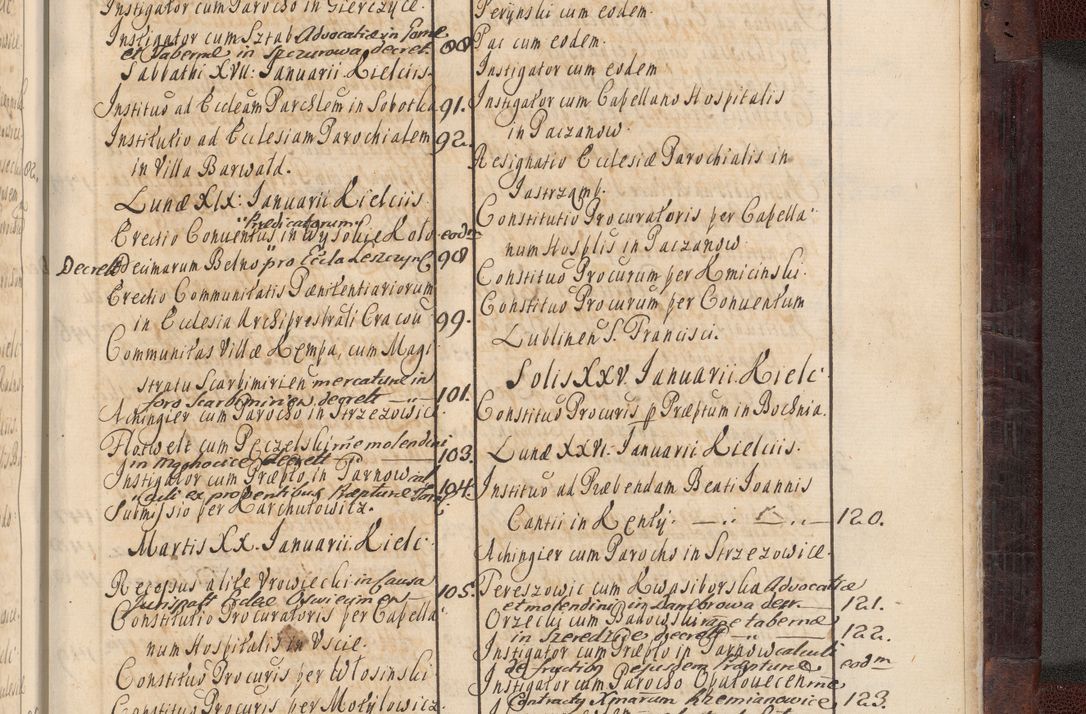 Instigator cum Parocho in Gierczyce.
Instigator cum Sztab Advocatiæ in
et Tabernæ in Szczurowa decret 88
Sabbathi XVII. Ianuarii Kielciis.
Institutio ad Ecclesiam Parchlem in Sobotka 91.
Institutio ad Ecclesiam Parochialem 92.
in Villa Barwałd.
Lunæ XIX. Ianuarii Kielciis.
Prædicatorum
Erectio Conuentus in Wysokie Koło eodm
Decret Decimarum Bełno pro Eccla Leszczyn 98
Erectio Communitatis Pænitentiariorum
in Ecclesia Archipresbtrali Cracou 99.
Communitas Villæ Kempa, cum Magi
stratu Scarbimirien mercaturæ in
foro Scarbimirien decrett 101.
Achingier cum Parocho in Strzezowice
cum Pęczelski me molendini
in decrett 103.
Instigator cum Præpto in Tarnow cal
culi ex proventibus Præpturæ 104.
Submissio per Karchutowitz.
Martis XX. Ianuarii Kielc
Recepus a lite Vrowiecki in Causa 105.
Oswiecimen
Constitutio Procuratoris per Capella
num Hospitalis in Vscie.
Constituo Procuris per Włosinski
Constituo Procuris per Motyłowicz
Perynski cum eodem.
Pac cum eodem.
Instigator cum eodem
Instigator cum Capellano Hospitalis
in Paczanow.
Resignatio Ecclesiæ Parochialis in
Jastrzamb.
Constitutio Procuratoris per Capella
num Hosplis in Paczanow
Constituo Procurum per Kmicinski.
Constituo Procurum per Conuentum
Lublinen S. Francisci.
Solis XXV. Ianuarii Kielc
Constituo Procuris p Præptum in Bochnia.
Lunæ XXVI. Ianuarii Kielciis.
Instituo ad Præbendam Beati Ioannis
Cantii in Kęnty. 120.
Achingier cum Parocho in Strzezowice
Pereszowic cum Kwasiborska Advocatiæ
et molendini in Zamborowa decr. 121.
Orzecki cum Badowski tabernæ
in decrett 122.
Instigator cum Præpto in Tarnow calculi
de fructib ejusdem Præpturæ eodm
Instigator cum Parocho me
Contractus Kmarum Kremianowice 123.